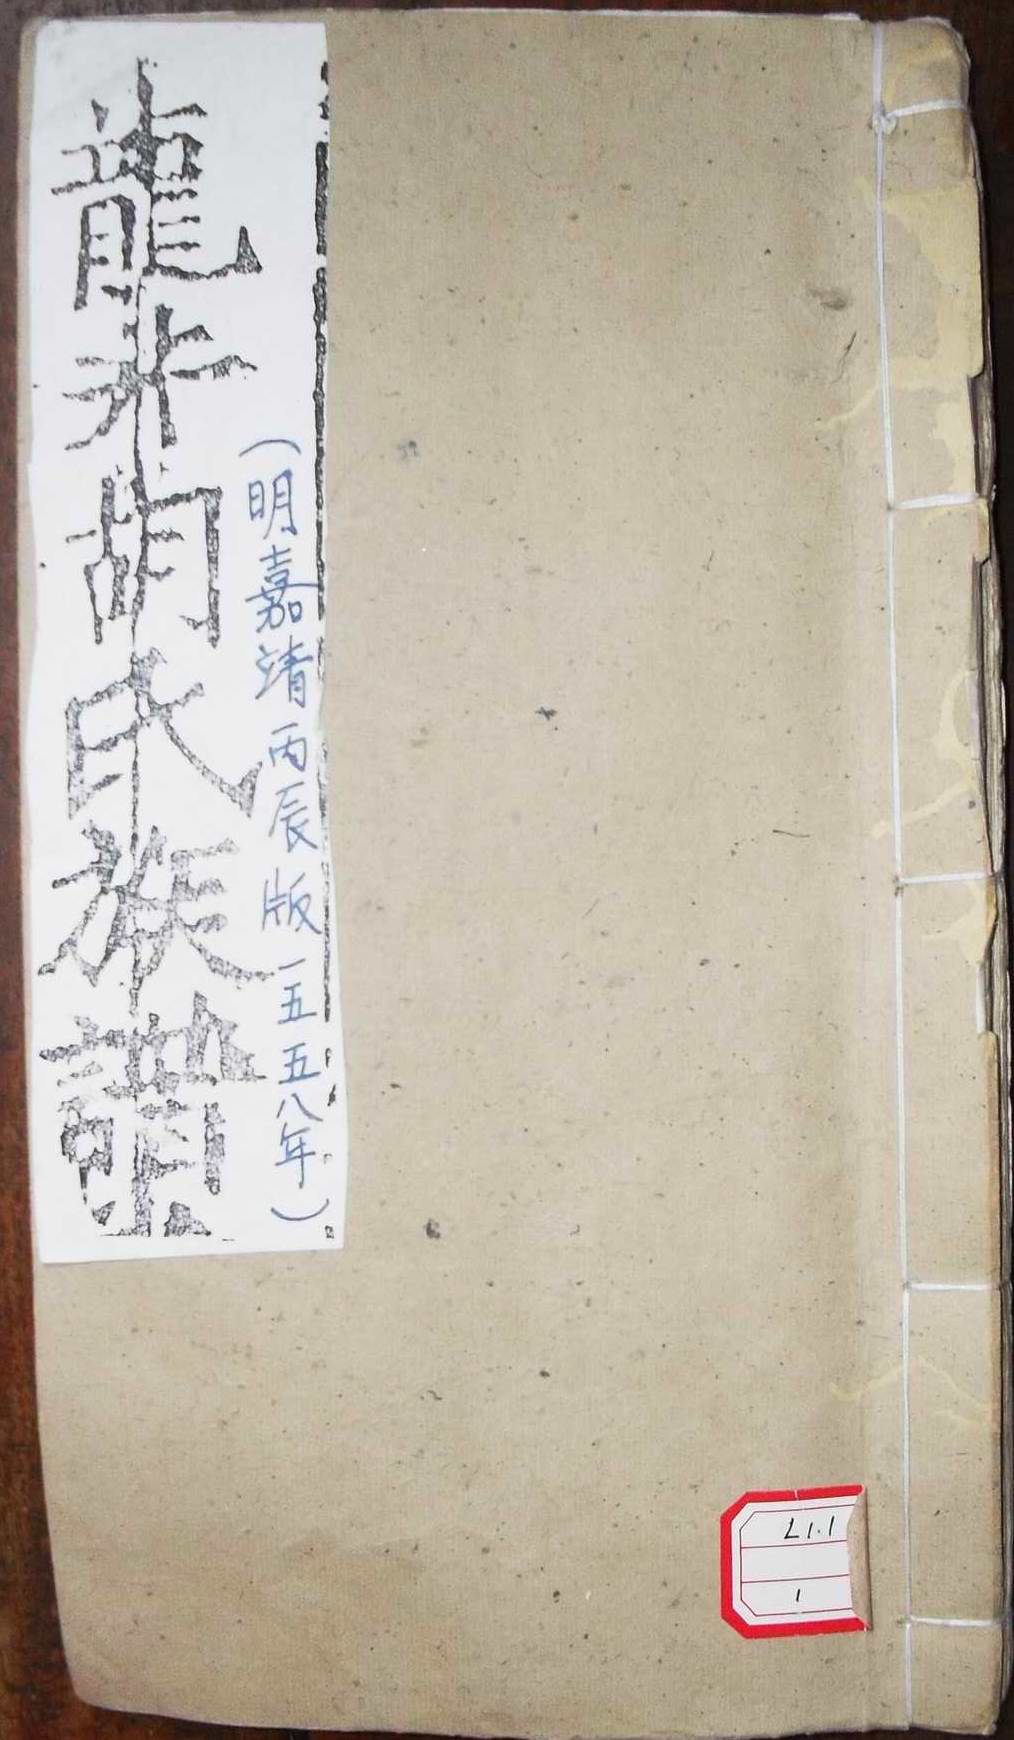 龍井胡氏族譜
(明嘉靖丙辰版一五五八年)
L1.1
1